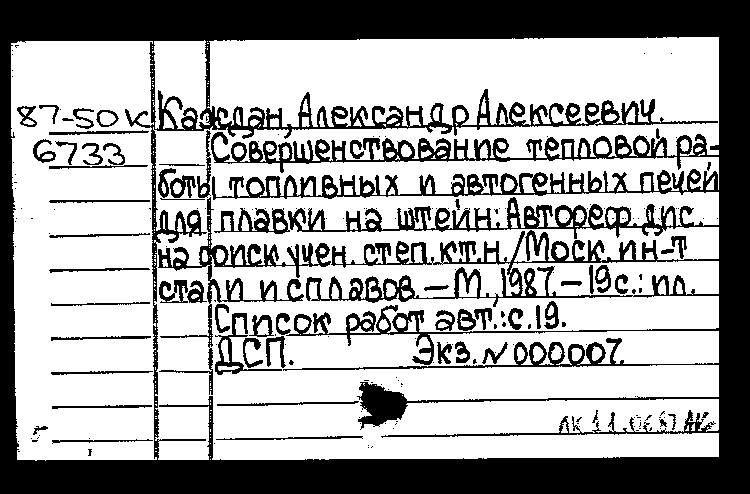 87-50к Каждан, Александр Алексеевич.
6733 Совершенствование тепловой ра-
боты топливных и автогенных печей
для плавки на штейн: Автореф. дис.
на соиск. учен. степ. к.т.н. / Моск. ин-т
стали и сплавов. — М., 1987. — 19 с.: ил.
Список работ авт.: с. 19.
ДСП. Экз. N 000007.
5 ЛК 11.06.87